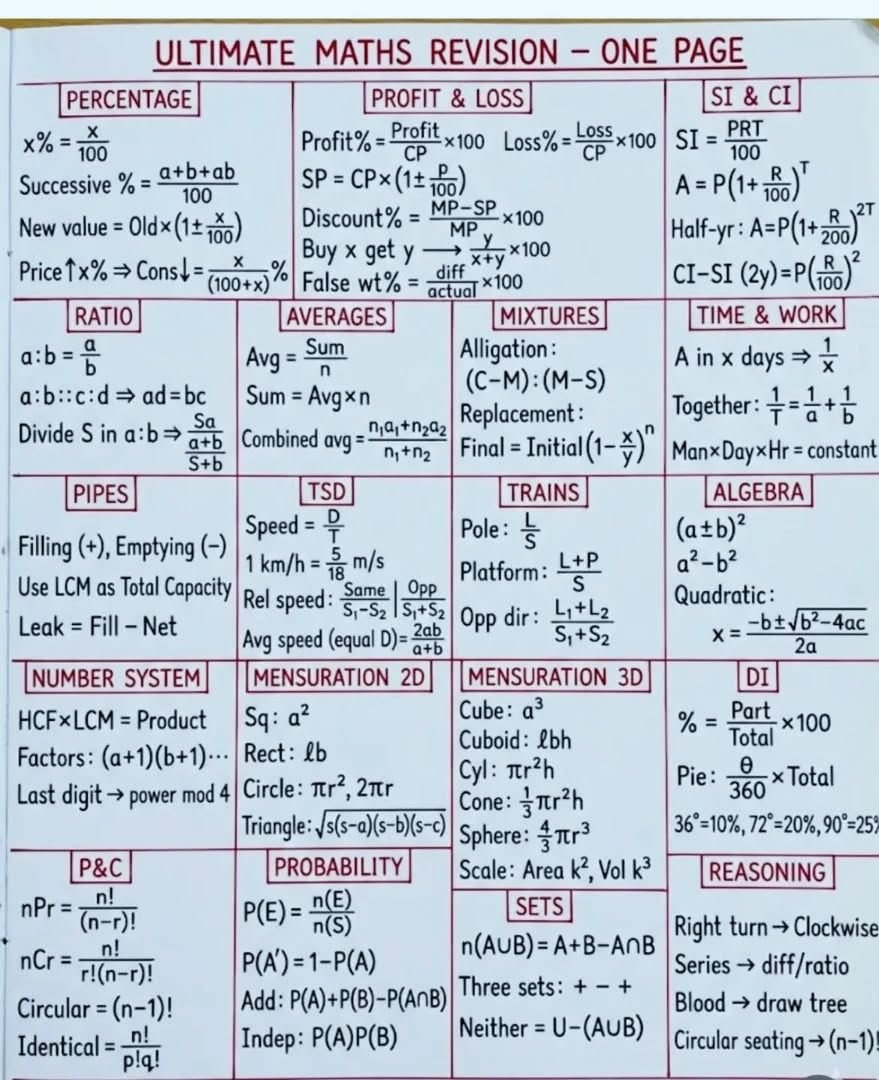 ULTIMATE MATHS REVISION – ONE PAGE
PERCENTAGE
x% = x/100
Successive % = (a+b+ab)/100
New value = Old×(1±x/100)
Price↑x% ⇒ Cons↓= x/(100+x) %
PROFIT & LOSS
Profit% = Profit/CP ×100 Loss% = Loss/CP ×100
SP = CP×(1±P/100)
Discount% = (MP–SP)/MP ×100
Buy x get y ⟶ y/(x+y) ×100
False wt% = diff/actual ×100
SI & CI
SI = PRT/100
A = P(1+R/100)^T
Half-yr: A=P(1+R/200)^2T
CI–SI (2y)=P(R/100)²
RATIO
a:b = a/b
a:b::c:d ⇒ ad=bc
Divide S in a:b ⇒ Sa/a+b/S+b
AVERAGES
Avg = Sum/n
Sum = Avg×n
Combined avg = (n₁a₁+n₂a₂)/(n₁+n₂)
MIXTURES
Alligation:
(C–M):(M–S)
Replacement:
Final = Initial(1–x/y)^n
TIME & WORK
A in x days ⇒ 1/x
Together: 1/T = 1/a + 1/b
Man×Day×Hr = constant
PIPES
Filling (+), Emptying (–)
Use LCM as Total Capacity
Leak = Fill – Net
TSD
Speed = D/T
1 km/h = 5/18 m/s
Rel speed: Same/S₁–S₂ | Opp/S₁+S₂
Avg speed (equal D)= 2ab/(a+b)
TRAINS
Pole: L/S
Platform: (L+P)/S
Opp dir: (L₁+L₂)/(S₁+S₂)
ALGEBRA
(a±b)²
a²–b²
Quadratic:
x = (–b±√(b²–4ac))/2a
NUMBER SYSTEM
HCF×LCM = Product
Factors: (a+1)(b+1)···
Last digit → power mod 4
MENSURATION 2D
Sq: a²
Rect: ℓb
Circle: πr², 2πr
Triangle: √(s(s–a)(s–b)(s–c))
MENSURATION 3D
Cube: a³
Cuboid: ℓbh
Cyl: πr²h
Cone: 1/3 πr²h
Sphere: 4/3 πr³
Scale: Area k², Vol k³
DI
% = Part/Total ×100
Pie: θ/360 ×Total
36°=10%, 72°=20%, 90°=25%
P&C
nPr = n!/(n–r)!
nCr = n!/r!(n–r)!
Circular = (n–1)!
Identical = n!/p!q!
PROBABILITY
P(E) = n(E)/n(S)
P(A′) = 1–P(A)
Add: P(A)+P(B)–P(A∩B)
Indep: P(A)P(B)
SETS
n(A∪B) = A+B–A∩B
Three sets: + – +
Neither = U–(A∪B)
REASONING
Right turn → Clockwise
Series → diff/ratio
Blood → draw tree
Circular seating → (n–1)!